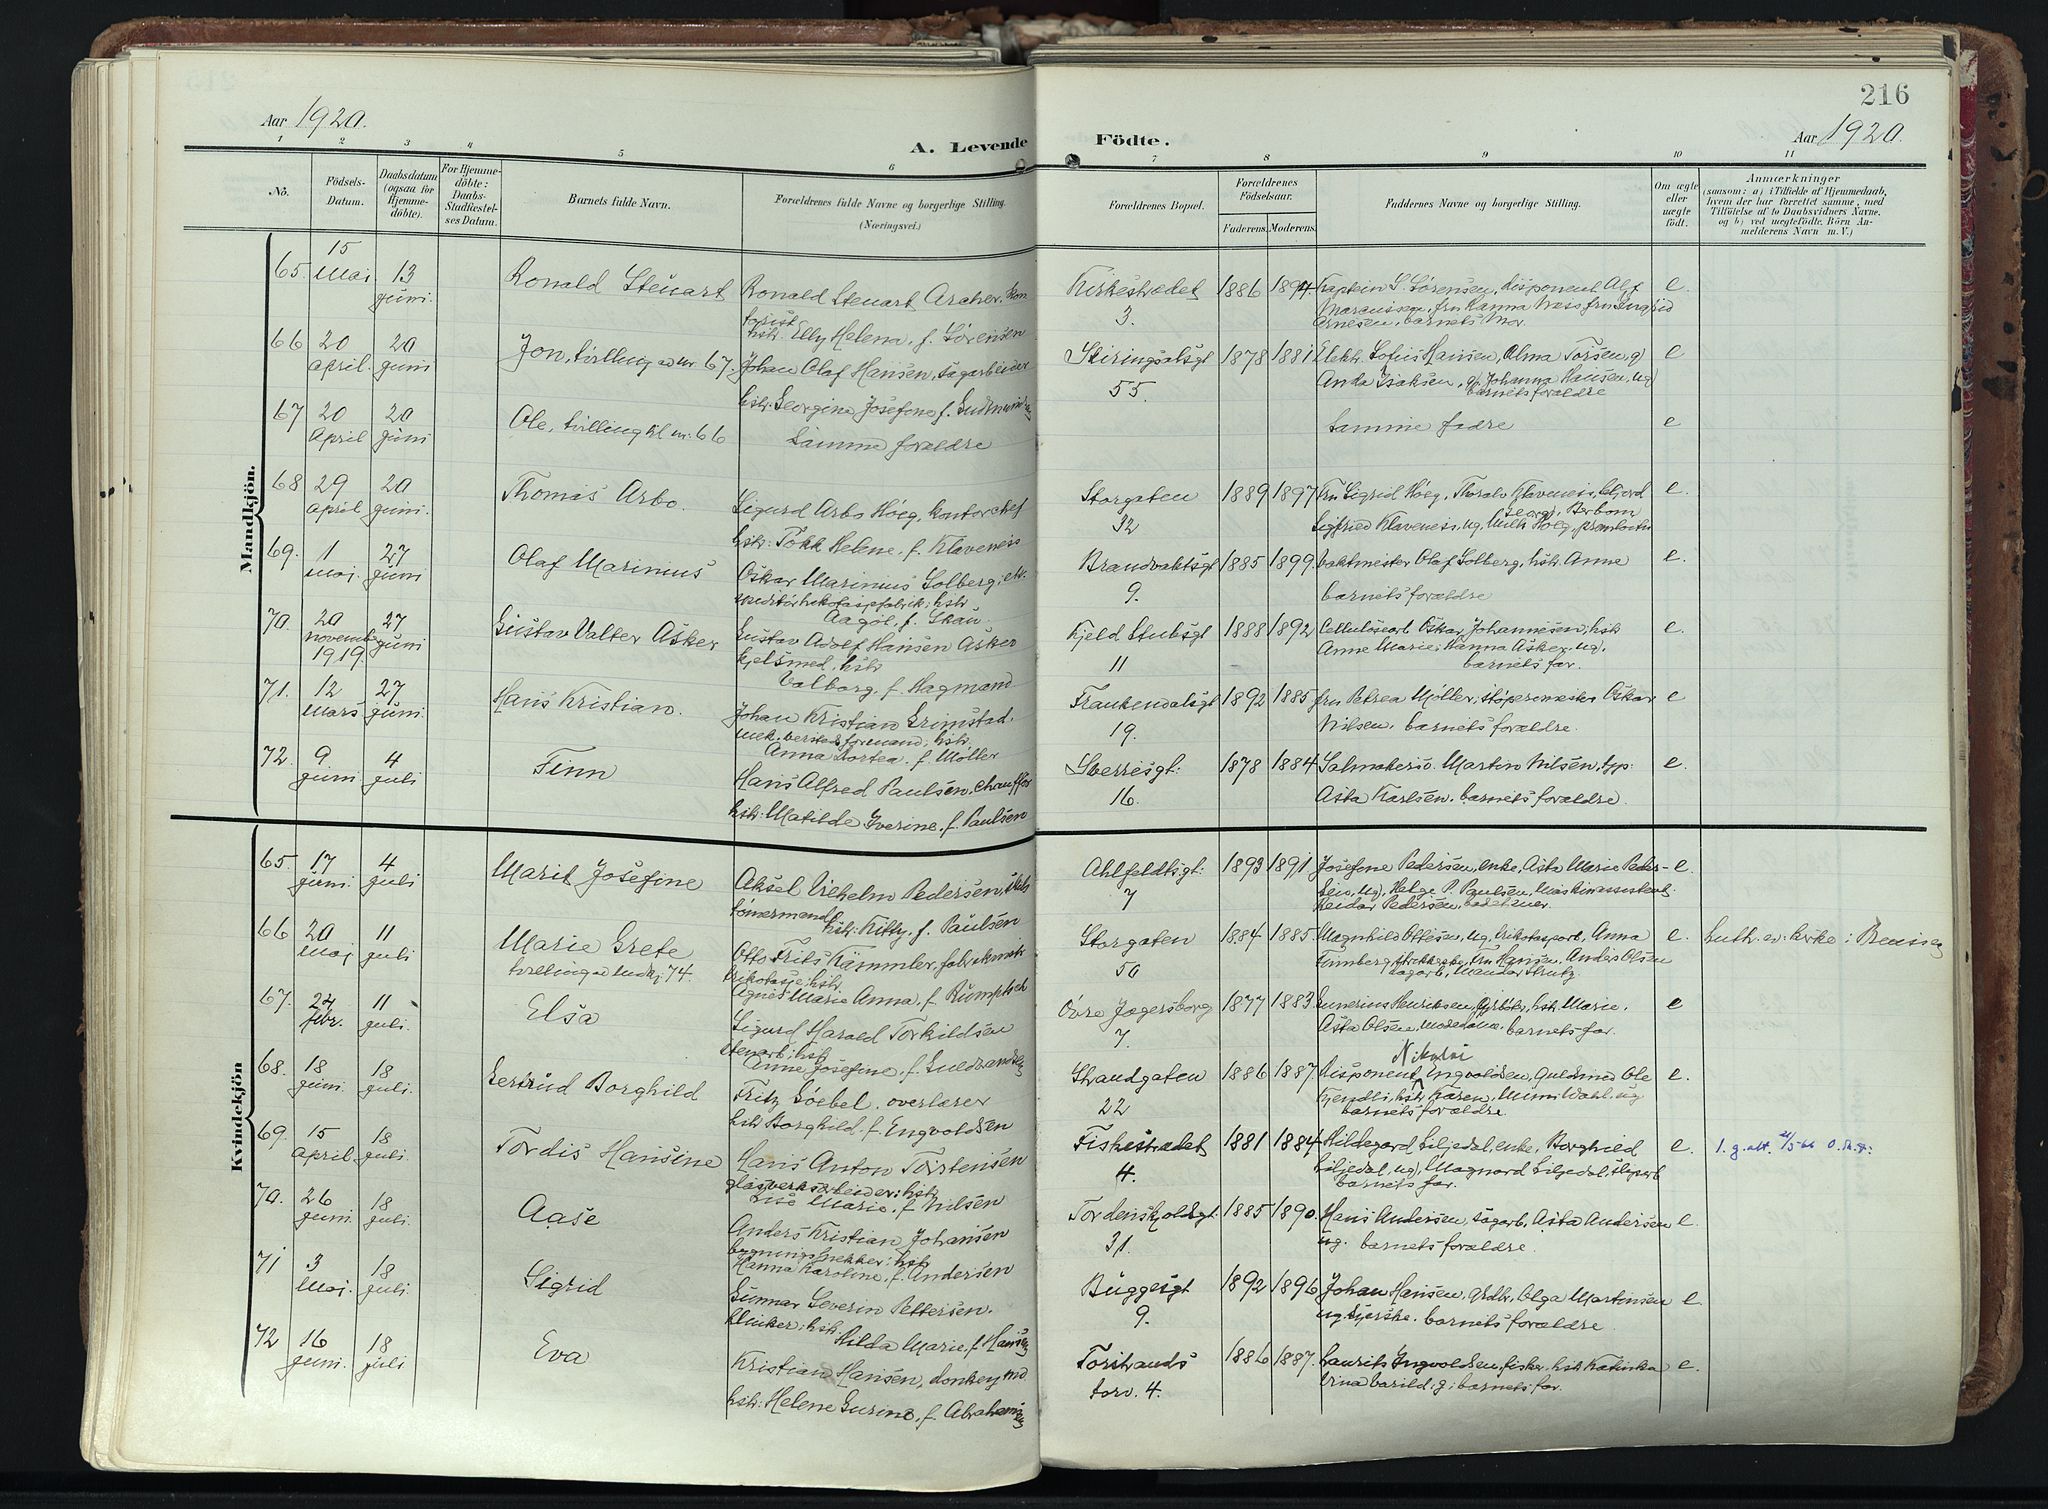 216
Aar 1920.
A. Levende
Födte.
Aar 1920.
1 2 3 4 5 6 7 8 9 10 11
No.
Födsels-Datum.
Daabsdatum (ogsaa for Hjemmedöbte).
For Hjemmedöbte: Daabs-Stadfæstelses Datum.
Barnets fulde Navn.
Forældrenes fulde Navne og borgerlige Stilling. (Næringsvei.)
Forældrenes Bopæl.
Forældrenes Födselsaar.
Faderens. Moderens.
Faddernes Navne og borgerlige Stilling.
Om ægte eller uægte födt.
Anmærkninger
(saasom: a) i Tilfælde af Hjemmedaab, hvem der har forrettet samme, med Tilföielse af to Daabsvidners Navne, og b) ved uægtefödte Börn Anmelderens Navn m. V.)
Mandkjön.
65. 15 Mai 13 juni. Ronald Steuart
Ronald Steuart Archer, kontorist
hstr. Elly Helena, f. Sørensen
Kirkestrædet 3. 1886 1894
Kaptein S. Sørensen, disponent Alf
Marcussen, fru Hanna Næss fru Ingrid
Arnesen, barnets mor. e.
66 20 april. 20 juni Jon, tvilling av nr 67.
Johan Olaf Hansen, sagarbeider
hstr. Georgine Josefone f. Gudmundsen
Skiringsalsgt 55. 1878 1881
Elektr. Sofus Hansen, Alma Torsen, g)
Anda Isaksen, g), Johanna Hansen, ug)
barnets forældre e
67 20 April 20 juni Ole, tvilling til nr. 66
Samme forældre
Samme fadre e
68 29 april 20 juni. Thomas Arbo.
Sigurd Arbo Høeg, kontorchef
hstr. Tokk Helene, f. Klaveness
Storgaten 32 1889 1897
Fru Sigrid Høeg, Thoralv Klaveness,
Georg Berbom
Sigfried Klaveness, ug, e.
69. 1 Mai. 27 juni Olaf Marinius
Oskar Marinius Solberg,
trikotagefabrik, hstr
Aagot, f. Skau
Brandvaktsgt 9. 1885 1899.
Vaktmester Olaf Solberg, hstr Anne
barnets forældre e.
70. 20 november 1919 27 juni Gustav Valter Asker
Gustav Adolf Hansen Asker
kjelsmed, hstr
Valborg, f. Hagmand
Kjeld Stubsgt 11 1888 1892
Cellulosearb Oskar Johannesen, hstr
Anne Marie, Hanna Asker, ug,
barnets far. e.
71. 12 Mars 27 juni. Hans Kristian.
Johan Kristian Grimstad.
mek. verksted formand, hstr
Anna Dortea. f. Møller
Frankendalsgt 19. 1892 1885
fru Petrea Møller, støpermester Oskar
Nilsen, barnets forældre. e
72. 9 juni 4 juli Finn
Hans Alfred Paulsen, chauffør
hstr. Matilde Iverine, f. Paulsen
Sverresgt. 16. 1878 1884
Salmakersv. Martin Nilsen, typ:
Asta Karlsen, barnets forældre. e.
Kvindekjön
65. 17 juni. 4 juli Marit Josefine
Aksel Vilhelm Pedersen,
tømermand, hstr. Kitty, f. Paulsen
Ahlfeldtsgt. 7 1893 1891
Josefine Pedersen, enke, Asta Marie Pedersen,
ug), Helge P. Paulsen, maskinassistent,
Reidar Pedersen, e.
66 20 Mai 11 juli Marie Grete
tvilling av mdkj 74.
Otto Frits Kämmler,
trikotasje, hstr
Agnes Marie Anna, f. Rumptsch
Storgaten 50 1884 1885.
Magnhild Ottesen, ug, trikotasjearb, Anna
Fru Hansen, Anders Olsen
sagarb, e. Luth. ev. kirke i
67. 27 febr. 11 juli. Elsa
Sigurd Harald Torkildsen
stenarb, hstr
Anne Josefine, f. Guldbrandsen
Øvre Jegersborg 7. 1877 1883
Henriksen, hstr Marie.
Asta Olsen, barnets far. e
68. 18 juni. 18 juli. Gertrud Borghild
Fritz Loebel. overlærer
hstr Borghild, f. Engvoldsen
Strandgaten 22 1886 1887.
Nikolai
Disponent Engvoldsen, Guldsmed Ole
Kjendli, hstr Karen, Mimi Wahl, ug
barnets forældre. e.
69. 15 April. 18 juli. Tordis Hansine
Hans Anton Torstensen
glasverksarbeider, hstr
Lise Marie, f. Nilsen
Fiskestrædet 4. 1881 1884
Hildegard Liljedal, enke, Borghild
Liljedal, ug), Magnard Liljedal,
barnets far. e. 1. g. att.
70. 26 juni. 18 juli. Aase
Anders Kristian Johansen
bygningssnekker, hstr
Hanna Karoline, f. Andersen
Tordenskjoldsgt. 31. 1885 1890.
Hans Andersen, sagarb, Asta Andersen
ug. barnets forældre. e.
71 3 Mai. 18 juli. Sigrid
Gunnar Severin Pettersen.
klinker, hstr
Hilda Marie, f. Hansen
Buggesgt 9. 1892 1896
Johan Hansen, Olga Martinsen
ug. barnets forældre. e.
72 16 juni. 18 juli Eva
Kristian Hansen, donkeymd
hstr: Helene Gurine, f. Abrahamsen
Torstrands torv. 4. 1886 1887.
Laurits Ingvoldsen, fisker, hstr Katinka
barnets far. e.